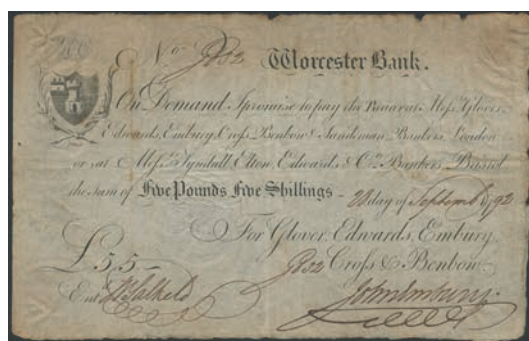 No. Worcester Bank.
On Demand I promise to pay the Bearer at Messrs. Glover,
Edwards, Embury, Cross, Benbow & Sandeman Bankers London
or at Messrs. Tyndall Elton, Edwards & Co. Bankers Bristol
the Sum of Five Pounds, Five Shillings - day of Septemb. 1792
For Glover, Edwards, Embury,
£5,5 Cross & Benbow
Ent. John Embury.